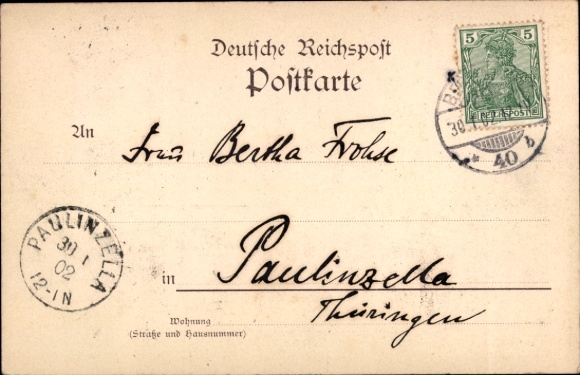 Deutsche Reichspost
Postkarte
5 5
REICHSPOST
30.1.02
* 40 b
An
Frau Bertha Frohse
PAULINZELLA
30 1
02
12-1N
in
Paulinzella
Thüringen
Wohnung
(Straße und Hausnummer)